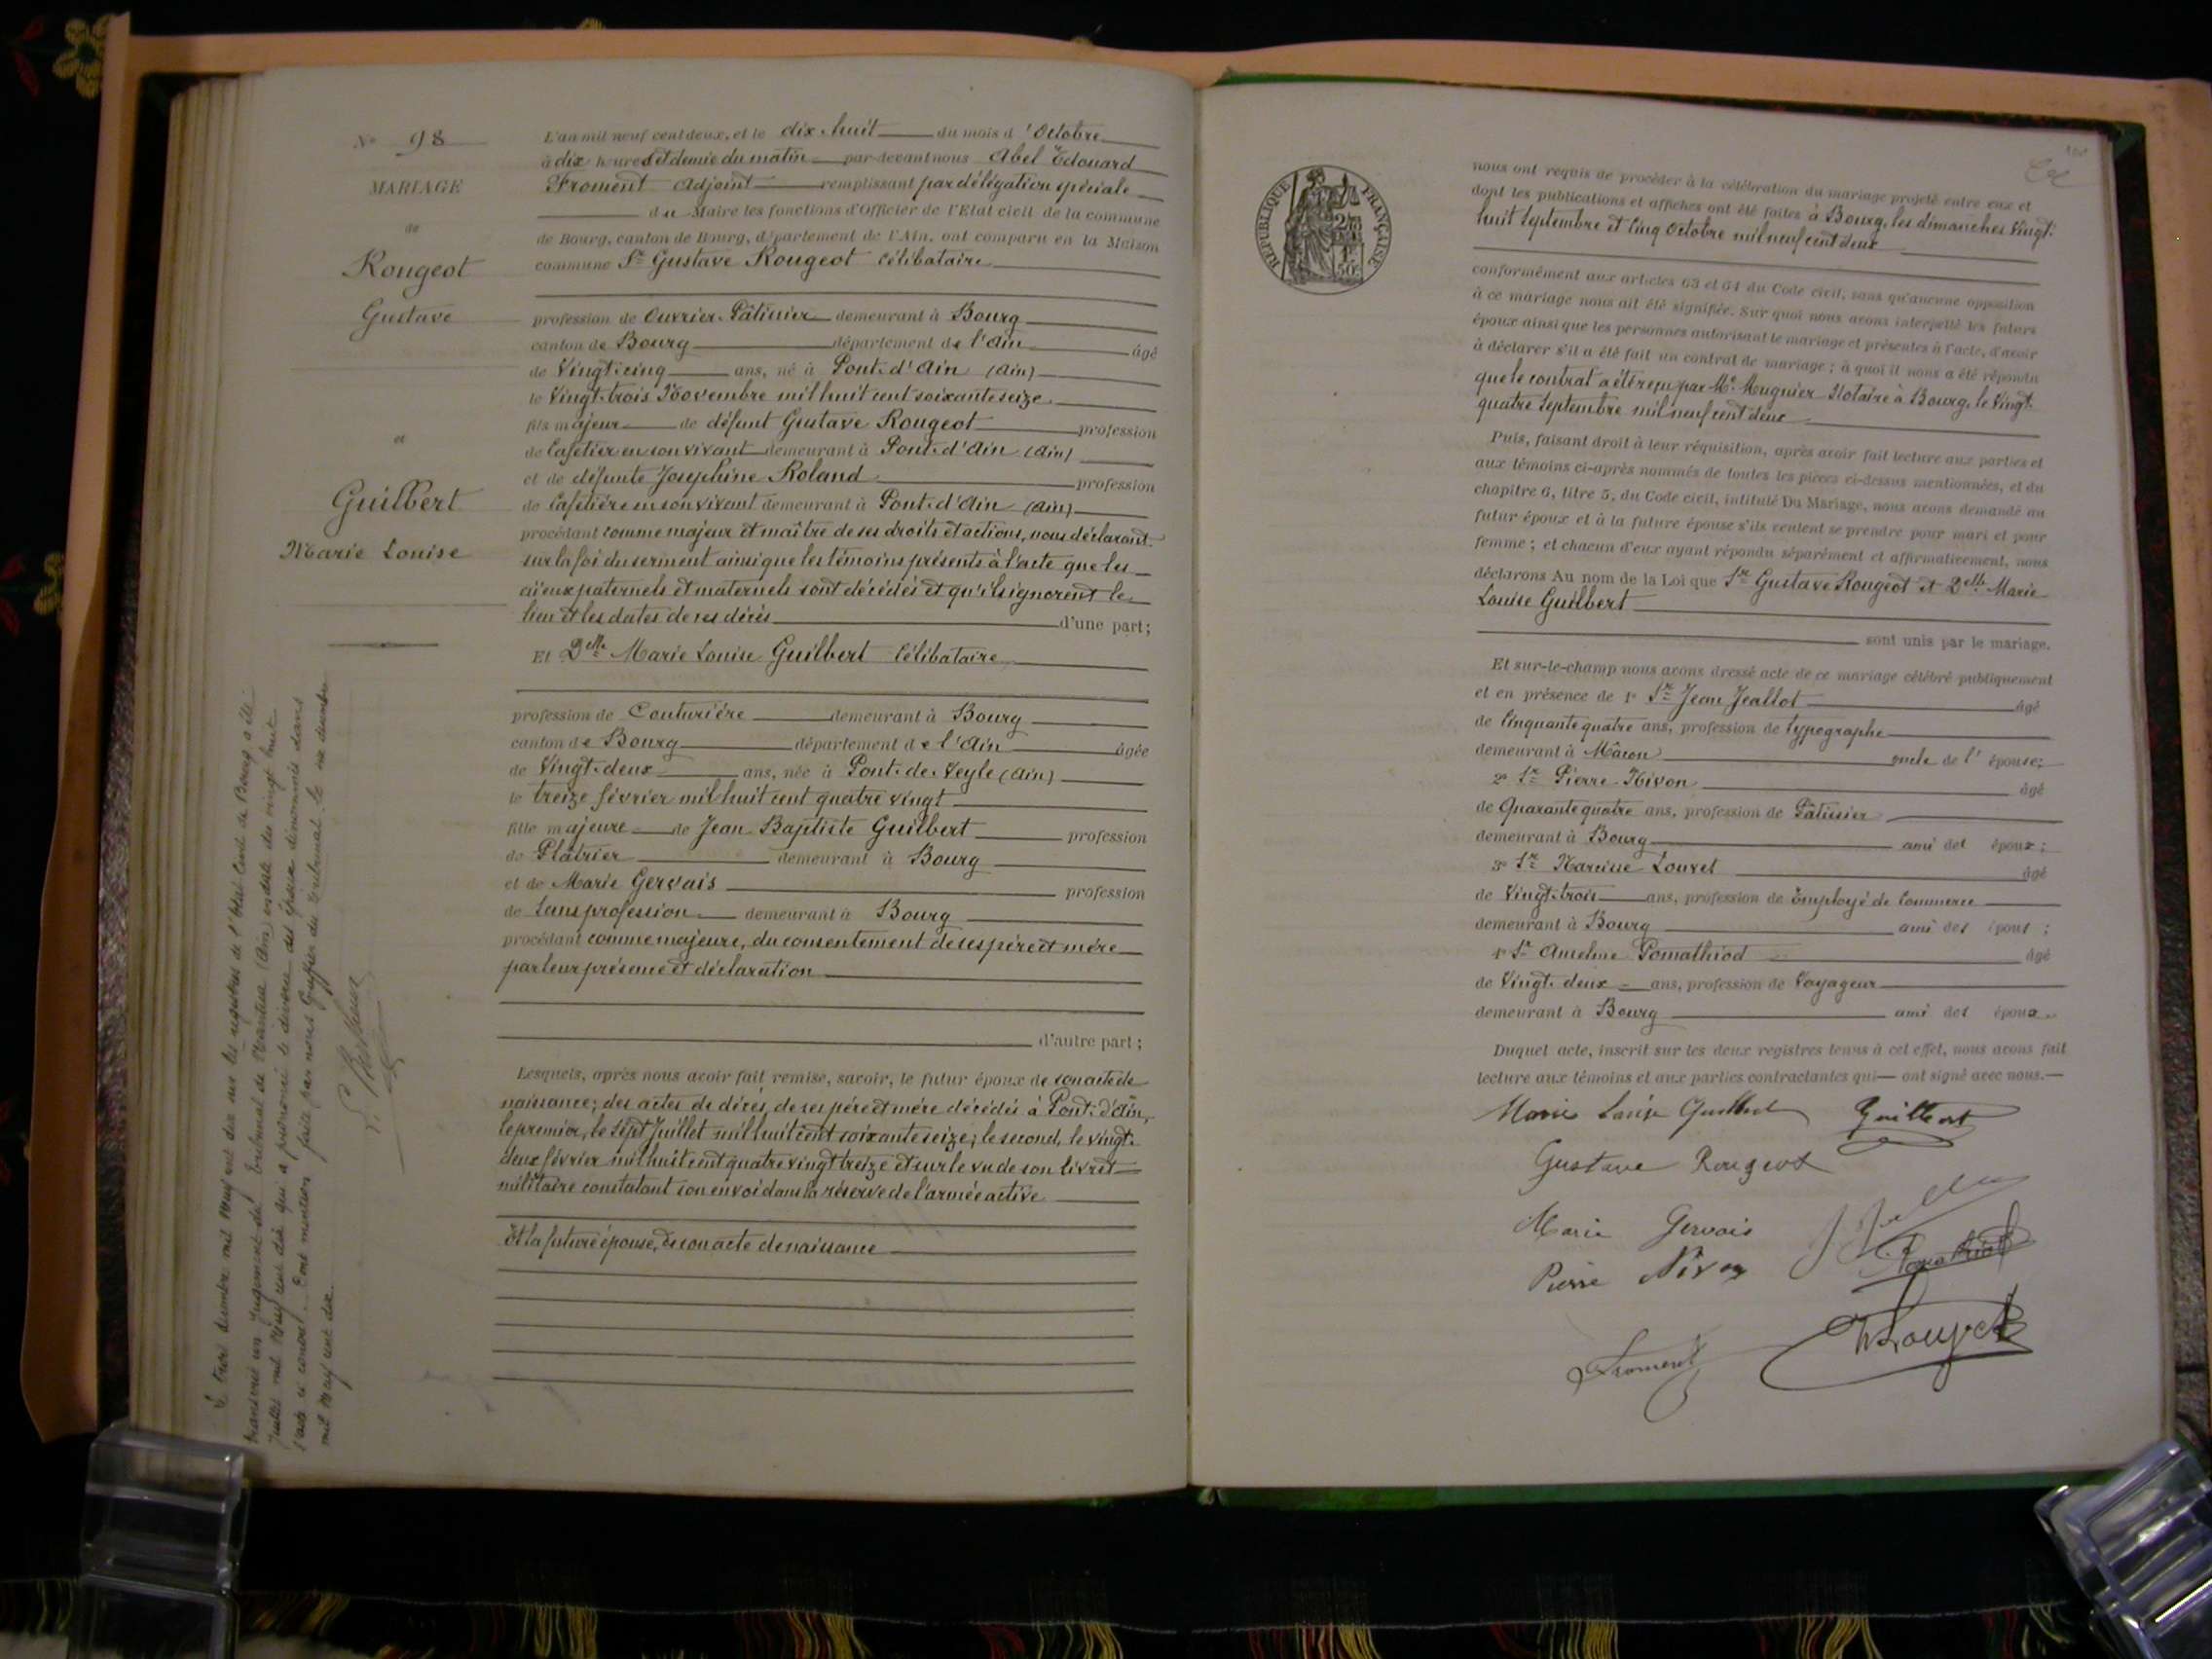 N° 98
MARIAGE
de
Rougeot
Gustave
et
Guilbert
Marie Louise
Le trois décembre mil neuf cent dix sur les registres de l'état Civil de Bourg a été
transcrit un jugement du Tribunal de Nantua (Ain) en date du vingt huit
juillet mil neuf cent dix qui a prononcé le divorce des époux dénommés dans
l'acte ci contre. Dont mention faite par nous Greffier du Tribunal le
mil neuf cent dix.
L'an mil neuf cent deux, et le dix huit du mois d'Octobre
à dix heures et demie du matin par-devant nous Abel Edouard
Froment Adjoint remplissant par délégation spéciale
du Maire les fonctions d'Officier de l'Etat civil de la commune
de Bourg, canton de Bourg, département de l'Ain, ont comparu en la Maison
commune Sr Gustave Rougeot Célibataire
profession de Ouvrier-Pâtissier demeurant à Bourg
canton de Bourg département de l'Ain âgé
de Vingt-cinq ans, né à Pont-d'Ain (Ain)
le Vingt-trois Novembre mil huit cent soixante seize
fils majeur de défunt Gustave Rougeot profession
de Cafetier en son vivant demeurant à Pont-d'Ain (Ain)
et de défunte Joséphine Roland profession
de Cafetière en son vivant demeurant à Pont-d'Ain (Ain)
procédant comme majeur et maître de ses droits et actions, nous déclarant
sur la foi du serment ainsi que les témoins présents à l'acte que les
aïeux paternels et maternels sont décédés et qu'ils ignorent le
lieu et les dates de ses décès d'une part;
Et Delle Marie Louise Guilbert Célibataire
profession de Couturière demeurant à Bourg
canton de Bourg département de l'Ain âgée
de Vingt-deux ans, née à Pont-de-Veyle (Ain)
le treize février mil huit cent quatre vingt
fille majeure de Jean-Baptiste Guilbert profession
de Plâtrier demeurant à Bourg
et de Marie Gervais profession
de Sans profession demeurant à Bourg
procédant comme majeure, du consentement de ses père et mère
par leur présence et déclaration
d'autre part;
Lesquels, après nous avoir fait remise, savoir, le futur époux de son acte de
naissance; des actes de décès de ses père et mère décédés à Pont-d'Ain,
le premier, le sept Juillet mil huit cent soixante seize; le second, le vingt-
deux février mil huit cent quatre vingt treize et sur le vu de son livret
militaire constatant son envoi dans la réserve de l'armée active
Et la future épouse, de son acte de naissance
RÉPUBLIQUE FRANÇAISE
nous ont requis de procéder à la célébration du mariage projeté entre eux et
dont les publications et affiches ont été faites à Bourg, les dimanches Vingt-
huit Septembre et Cinq Octobre mil neuf cent deux
conformément aux articles 63 et 64 du Code civil, sans qu'aucune opposition
à ce mariage nous ait été signifiée. Sur quoi nous avons interpellé les futurs
époux ainsi que les personnes autorisant le mariage et présentes à l'acte, d'avoir
à déclarer s'il a été fait un contrat de mariage; à quoi il nous a été répondu
que le contrat a été reçu par Me Mugnier Notaire à Bourg, le Vingt-
quatre Septembre mil neuf cent deux
Puis, faisant droit à leur réquisition, après avoir fait lecture aux parties et
aux témoins ci-après nommés de toutes les pièces ci-dessus mentionnées, et du
chapitre 6, titre 5, du Code civil, intitulé Du Mariage, nous avons demandé au
futur époux et à la future épouse s'ils veulent se prendre pour mari et pour
femme; et chacun d'eux ayant répondu séparément et affirmativement, nous
déclarons Au nom de la Loi que Sr Gustave Rougeot et Delle Marie
Louise Guilbert
sont unis par le mariage.
Et sur-le-champ nous avons dressé acte de ce mariage célébré publiquement
et en présence de 1° Sr Jean Jeallot âgé
de Cinquante quatre ans, profession de typographe
demeurant à Mâcon oncle de l'épouse;
2° Sr Pierre Nivon âgé
de Quarante quatre ans, profession de Pâtissier
demeurant à Bourg ami des époux;
3° Sr Narcisse Louvet âgé
de Vingt-trois ans, profession de Employé de Commerce
demeurant à Bourg ami des époux;
4° Sr Anselme Pomathiod âgé
de Vingt-deux ans, profession de Voyageur
demeurant à Bourg ami des époux.
Duquel acte, inscrit sur les deux registres tenus à cet effet, nous avons fait
lecture aux témoins et aux parties contractantes qui ont signé avec nous.
Marie Louise Guilbert Guilbert
Gustave Rougeot
Marie Gervais
Pierre Nivon Pomathiod
Froment Louvet